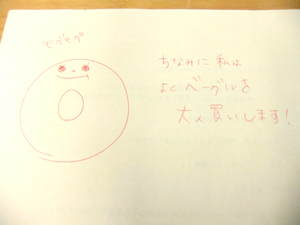 モグモグ
ちなみに 私は
よく ベーグルを
大人買いします!